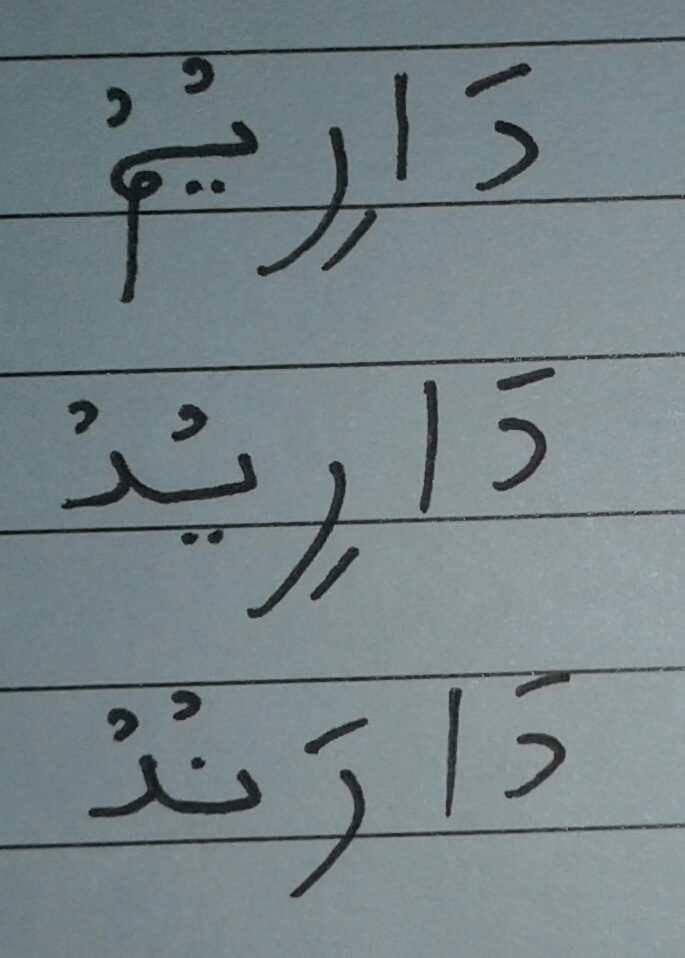 دَارِيْمْ
دَارِيْدْ
دَارَنْدْ